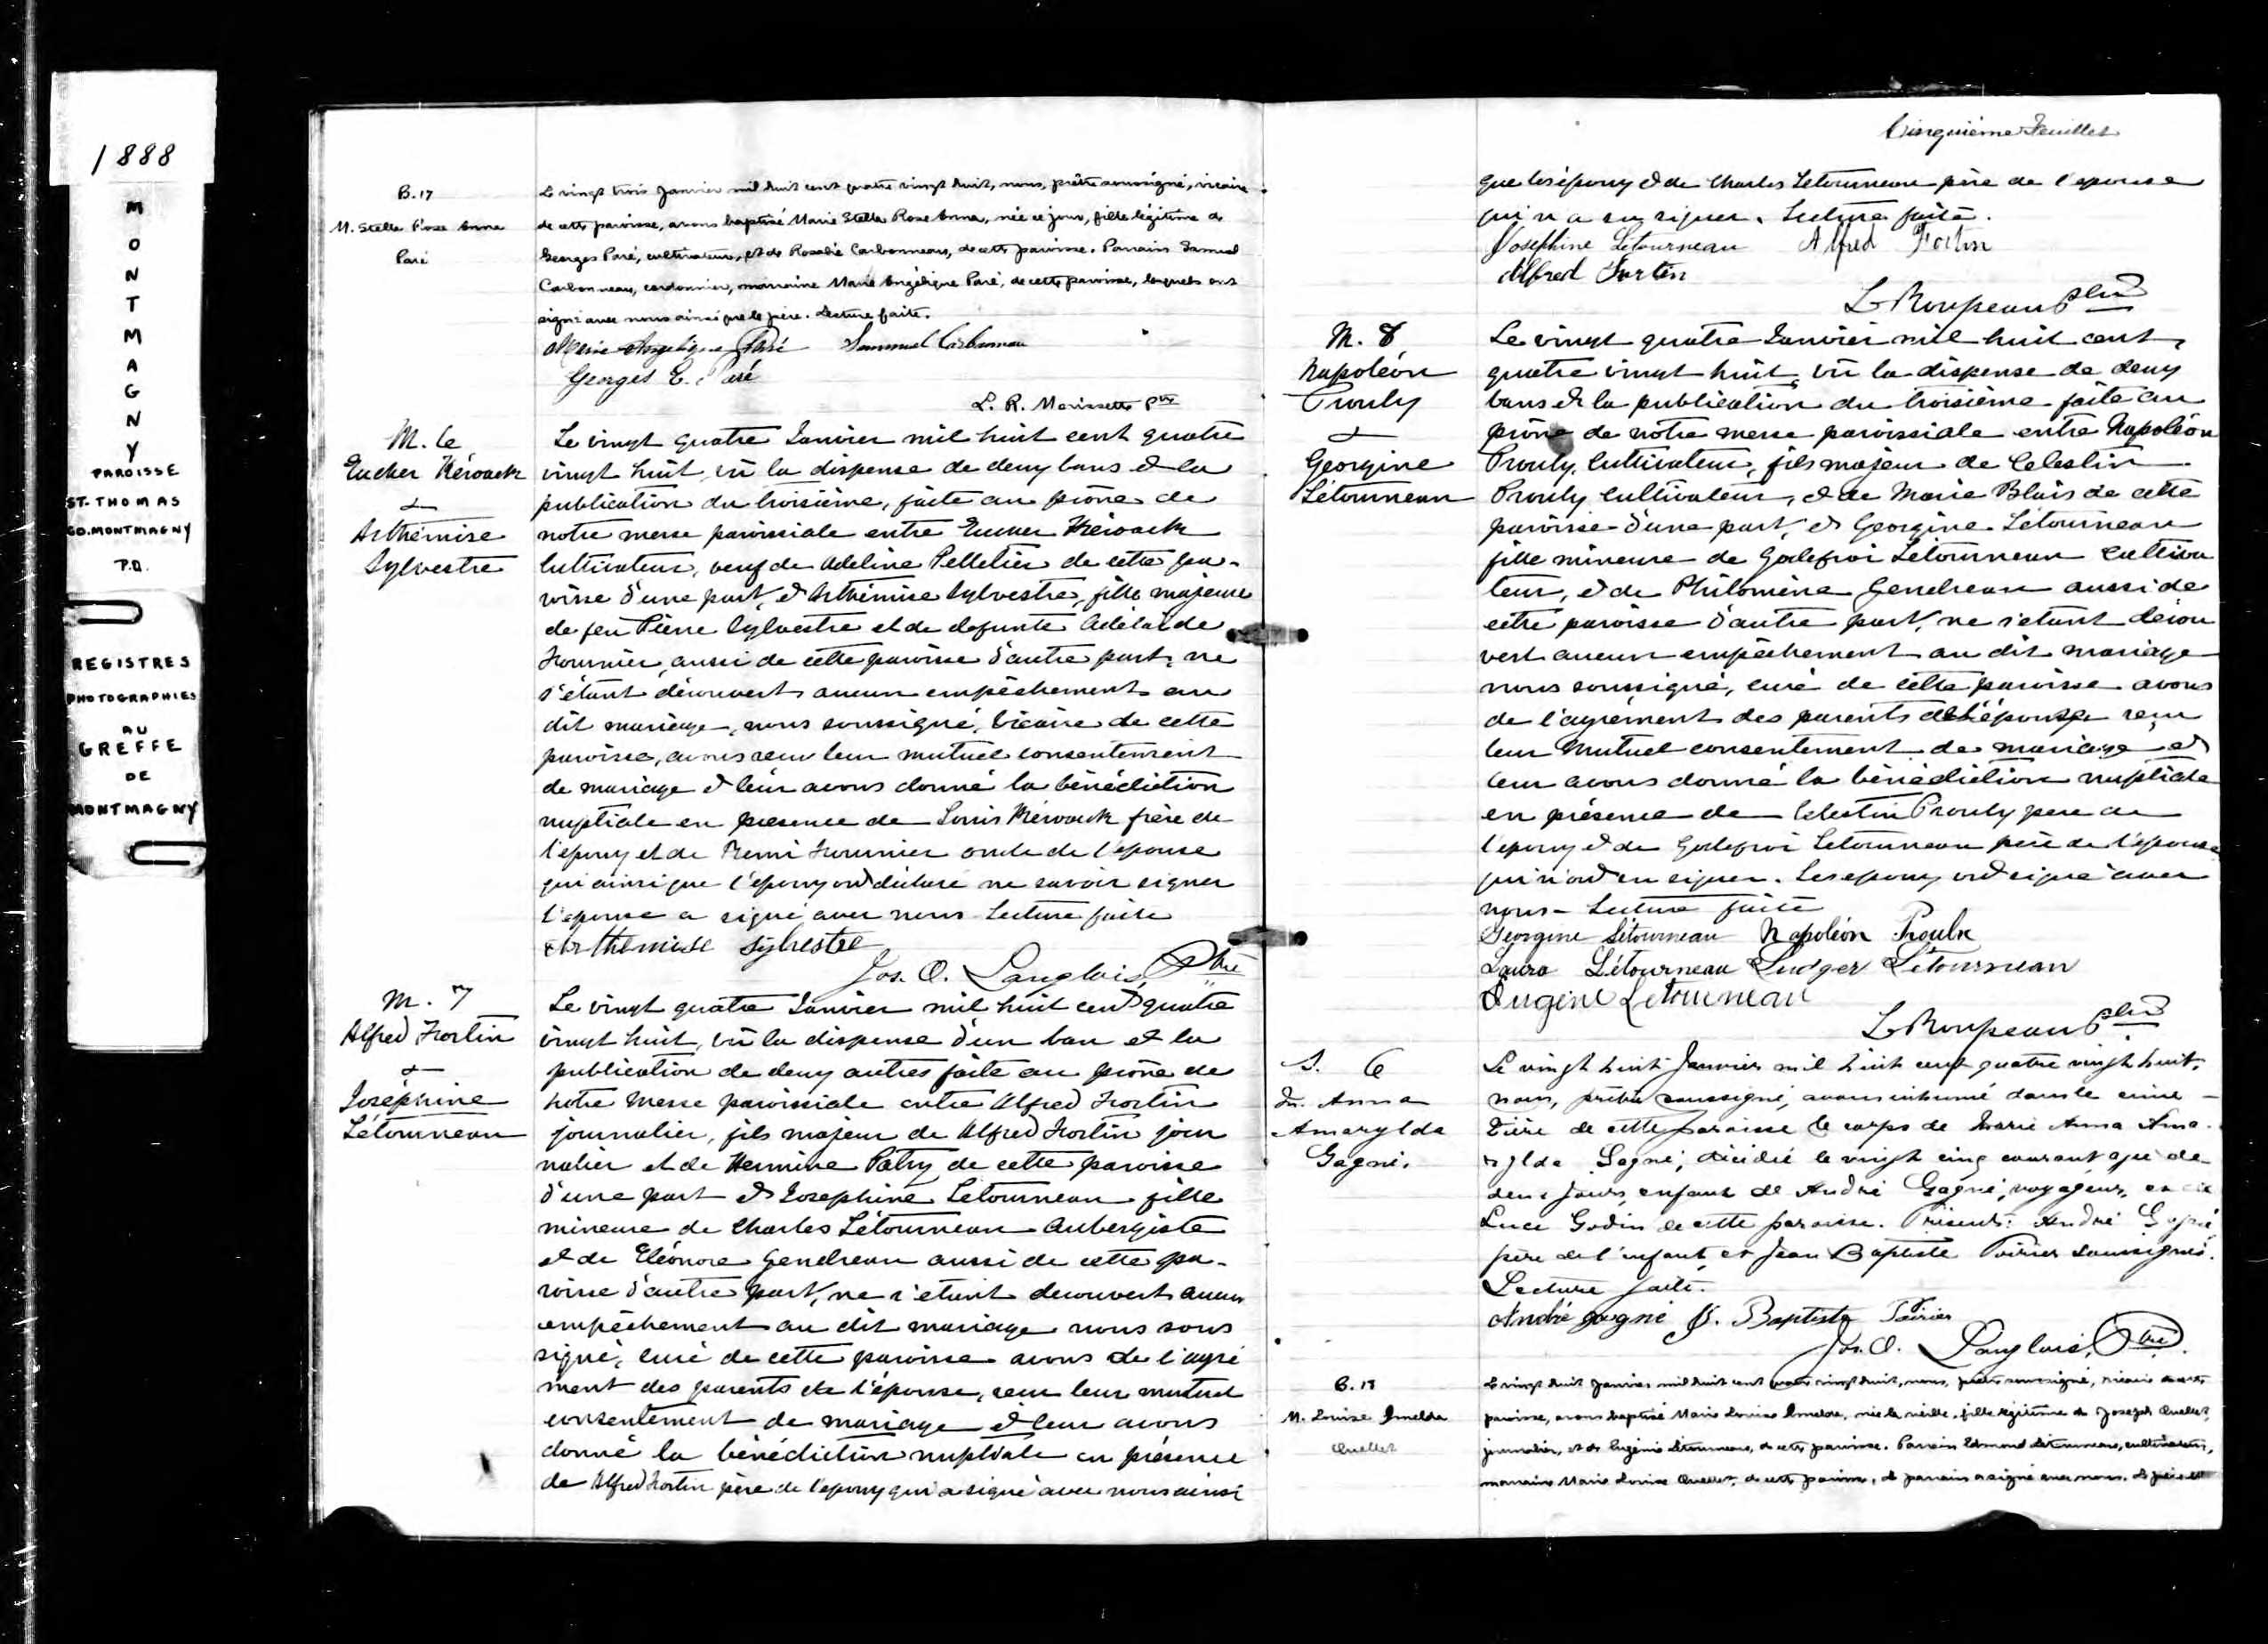 1888
MONTMAGNY
PAROISSE
ST. THOMAS
CO. MONTMAGNY
P.Q.
REGISTRES
PHOTOGRAPHIES
AU
GREFFE
DE
MONTMAGNY
B. 17
M. Stella Rose Anna
Paré
Le vingt trois Janvier mil huit cent quatre vingt huit, nous, prêtre soussigné, vicaire
de cette paroisse, avons baptisé Marie Stella Rose Anna, née ce jour, fille légitime de
Georges Paré, cultivateur, et de Rosalie Carbonneau, de cette paroisse. Parrain Samuel
Carbonneau, cordonnier, marraine Marie Angélique Paré, de cette paroisse, lesquels ont
signé avec nous ainsi que le père. Lecture faite.
Marie Angélique Paré Samuel Carbonneau
Georges E. Paré
L. R. Morissette Ptre
M. 6
Eucher Kérouack
&
Arthémise
Sylvestre
Le vingt quatre Janvier mil huit cent quatre
vingt huit, vû la dispense de deux bans et la
publication du troisième, faite au prône de
notre messe paroissiale entre Eucher Kérouack
Cultivateur, veuf de Adeline Pelletier de cette pa-
roisse d'une part, et Arthémise Sylvestre, fille majeure
de feu Pierre Sylvestre et de defunte Adelaide
Fournier, aussi de cette paroisse d'autre part, ne
s'étant découvert aucun empêchement au
dit mariage, nous soussigné, Vicaire de cette
paroisse, avons reçu leur mutuel consentement
de mariage et leur avons donné la bénédiction
nuptiale en présence de Louis Kérouack frère de
l'époux et de Remi Fournier oncle de l'epouse
qui ainsi que l'epoux ont déclaré ne savoir signer
l'epouse a signé avec nous Lecture faite
Arthemise Sylvestre
Jos. O. Langlois, Ptre
M. 7
Alfred Fortin
&
Joséphine
Létourneau
Le vingt quatre Janvier mil huit cent quatre
vingt huit, vû la dispense d'un ban et la
publication de deux autres faite au prône de
notre messe paroissiale entre Alfred Fortin
journalier, fils majeur de Alfred Fortin jour
nalier et de Hermine Patry de cette paroisse
d'une part et Josephine Letourneau fille
mineure de Charles Létourneau Aubergiste
et de Eléonore Gendreau aussi de cette pa-
roisse d'autre part, ne s'etant decouvert aucun
empêchement au dit mariage nous sous
signé, curé de cette paroisse avons de l'agré
ment des parents de l'épouse, reçu leur mutuel
consentement de mariage et leur avons
donné la bénédiction nuptiale en présence
de Alfred Fortin père de l'epoux qui a signé avec nous ainsi
Cinquième Feuillet
que les époux et de Charles Letourneau père de l'epouse
qui n'a su signer. Lecture faite.
Joséphine Létourneau Alfred Fortin
Alfred Fortin
L Roupeau Ptre
M. 8
Napoléon
Proulx
&
Georgine
Létourneau
Le vingt quatre Janvier mil huit cent
quatre vingt huit, vû la dispense de deux
bans et la publication du troisième faite au
prône de notre messe paroissiale entre Napoléon
Proulx, Cultivateur, fils majeur de Celestin
Proulx Cultivateur, et de Marie Blais de cette
paroisse d'une part, et Georgine Létourneau
fille mineure de Godefroi Létourneau Cultiva
teur, et de Philomène Gendreau aussi de
cette paroisse d'autre part, ne s'etant décou
vert aucun empêchement au dit mariage
nous soussigné, curé de cette paroisse avons
de l'agrément des parents de l'épouse reçu
leur mutuel consentement de mariage et
leur avons donné la bénédiction nuptiale
en présence de Celestin Proulx père de
l'epoux et de Godefroi Letourneau père de l'épouse
qui n'ont su signer. Les epoux ont signé avec
nous - Lecture faite
Georgine Létourneau Napoléon Proulx
Laura Létourneau Ludger Létourneau
Eugène Létourneau
L Roupeau Ptre
S. 6
Anna
Amarylda
Gagné.
Le vingt huit Janvier mil huit cent quatre vingt huit,
nous, prêtre soussigné, avons inhumé dans le cime-
tière de cette paroisse le corps de Marie Anna Ama-
rylda Gagné, décédée le vingt cinq courant agée de
deux jours, enfant de André Gagné, voyageur, et de
Luce Godin de cette paroisse. Présents: André Gagné
père de l'enfant, et Jean Baptiste Poirier soussignés.
Lecture faite.
André Gagné J. Baptiste Poirier
Jos. O. Langlois, Ptre.
B. 18
M. Louise Imelda
Ouellet
Le vingt huit Janvier mil huit cent quatre vingt huit, nous, prêtre soussigné, vicaire de cette
paroisse, avons baptisé Marie Louise Imelda, née la veille, fille légitime de Joseph Ouellet,
journalier, et de Eugénie Létourneau, de cette paroisse. Parrain Edmond Létourneau, cultivateur,
marraine Marie Louise Ouellet, de cette paroisse, le parrain a signé avec nous. Le père et